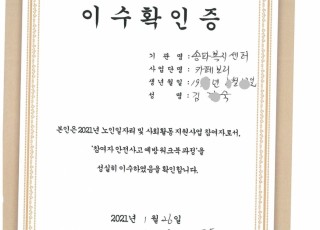 이수확인증
기 관 명 : 송파복지센터
사 업 단 명 : 카페보러
생 년 월 일 : 19 년 월 일
성 명 : 김 숙
본인은 2021년 노인일자리 및 사회활동 지원사업 참여자로서,
'참여자 안전사고 예방 워크북 과정'을
성실히 이수하였음을 확인합니다.
2021년 1월 26일